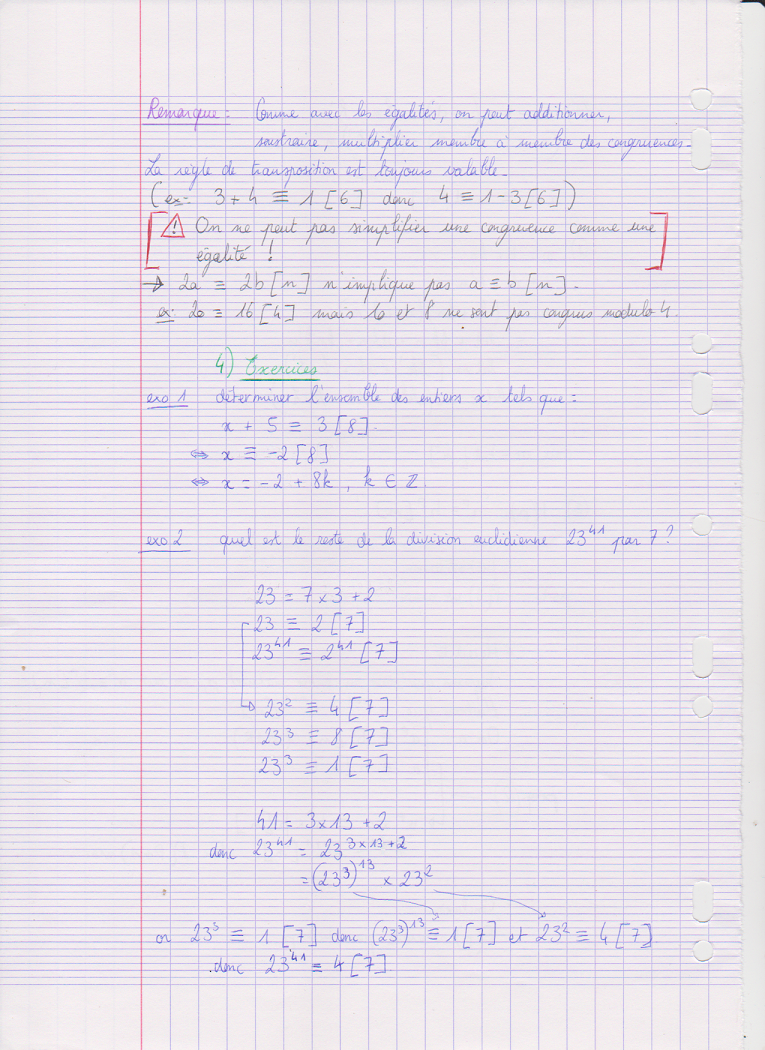 Remarque : Comme avec les égalités, on peut additionner,
soustraire, multiplier membre à membre des congruences.
La règle de transposition est toujours valable.
(ex: 3 + 4 ≡ 1 [6] donc 4 ≡ 1 - 3 [6])
⚠ On ne peut pas simplifier une congruence comme une
égalité !
→ 2a ≡ 2b [n] n'implique pas a ≡ b [n].
ex: 20 ≡ 16 [4] mais 10 et 8 ne sont pas congrus modulo 4.
4) Exercices
exo 1 déterminer l'ensemble des entiers x tels que :
x + 5 ≡ 3 [8].
⇔ x ≡ -2 [8]
⇔ x = -2 + 8k, k ∈ ℤ.
exo 2 quel est le reste de la division euclidienne 23⁴¹ par 7 ?
23 = 7 × 3 + 2
23 ≡ 2 [7]
23⁴¹ ≡ 2⁴¹ [7]
23² ≡ 4 [7]
23³ ≡ 8 [7]
23³ ≡ 1 [7]
41 = 3 × 13 + 2
donc 23⁴¹ = 23³ˣ¹³⁺²
= (23³)¹³ × 23²
or 23³ ≡ 1 [7] donc (23³)¹³ ≡ 1 [7] et 23² ≡ 4 [7]
donc 23⁴¹ ≡ 4 [7]